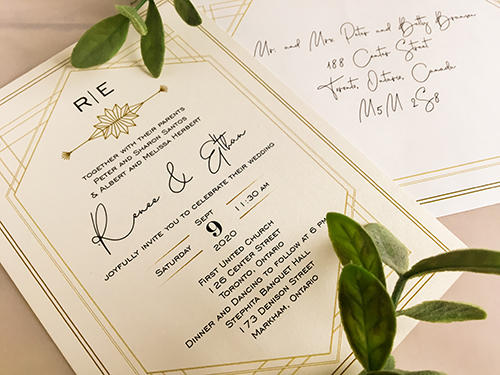 R|E
TOGETHER WITH THEIR PARENTS
PETER AND SHARON SANTOS
& ALBERT AND MELISSA HERBERT
Renee & Ethan
JOYFULLY INVITE YOU TO CELEBRATE THEIR WEDDING
SEPT
SATURDAY 9 11:30 AM
2020
FIRST UNITED CHURCH
126 CENTER STREET
TORONTO, ONTARIO
DINNER AND DANCING TO FOLLOW AT 6 PM
STEPHITA BANQUET HALL
173 DENISON STREET
MARKHAM, ONTARIO
Mr. and Mrs. Peter and Betty Bronson
188 Center Street
Toronto, Ontario, Canada
M5M 2S8